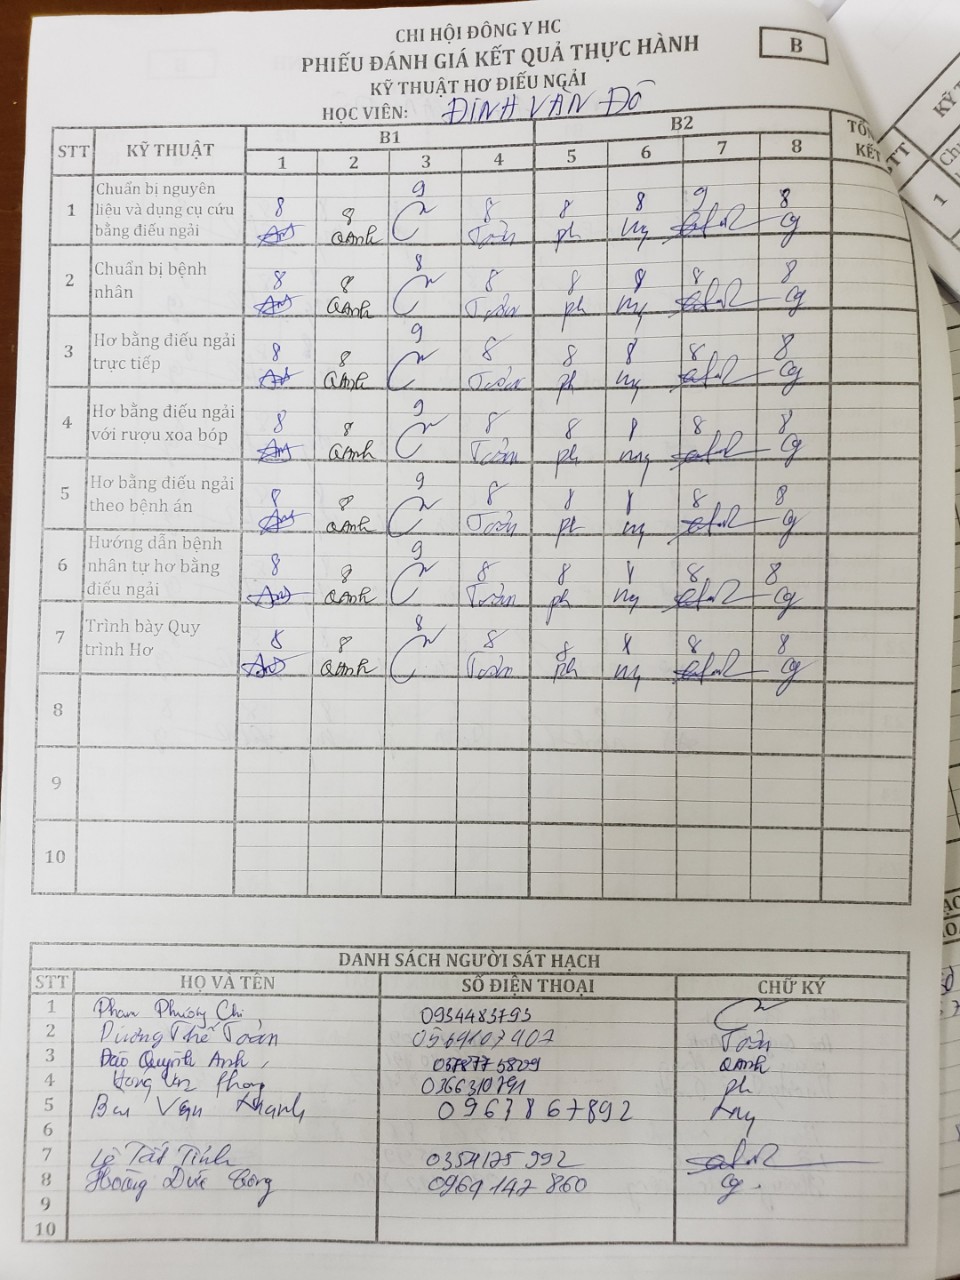 CHI HỘI ĐÔNG Y HC
PHIẾU ĐÁNH GIÁ KẾT QUẢ THỰC HÀNH
B
KỸ THUẬT HƠ ĐIẾU NGẢI
HỌC VIÊN: ĐINH VĂN ĐÔ
STT KỸ THUẬT B1 B2 TỔN KẾT
1 2 3 4 5 6 7 8
1 Chuẩn bị nguyên liệu và dụng cụ cứu bằng điếu ngải 8 8 9 8 8 8 9 8
QAnh Toàn ph cg
2 Chuẩn bị bệnh nhân 8 8 8 8 8 8 8 8
QAnh Toàn ph cg
3 Hơ bằng điếu ngải trực tiếp 8 8 9 8 8 8 8 8
QAnh Toàn ph cg
4 Hơ bằng điếu ngải với rượu xoa bóp 8 8 9 8 8 8 8 8
QAnh Toàn ph cg
5 Hơ bằng điếu ngải theo bệnh án 8 8 9 8 8 8 8 8
QAnh Toàn ph cg
6 Hướng dẫn bệnh nhân tự hơ bằng điếu ngải 8 8 9 8 8 8 8 8
QAnh Toàn ph cg
7 Trình bày Quy trình Hơ 8 8 8 8 8 8 8 8
QAnh Toàn ph cg
8
9
10
DANH SÁCH NGƯỜI SÁT HẠCH
STT HỌ VÀ TÊN SỐ ĐIỆN THOẠI CHỮ KÝ
1 Phan Phương Chi 0934483793
2 Dương Thế Toàn Toàn
3 Đào Quỳnh Anh QAnh
4 ph
5 0963867892
6
7 Lê Tất Tính 0354175992
8 Hoàng Đức Công 0969147860 cg
9
10